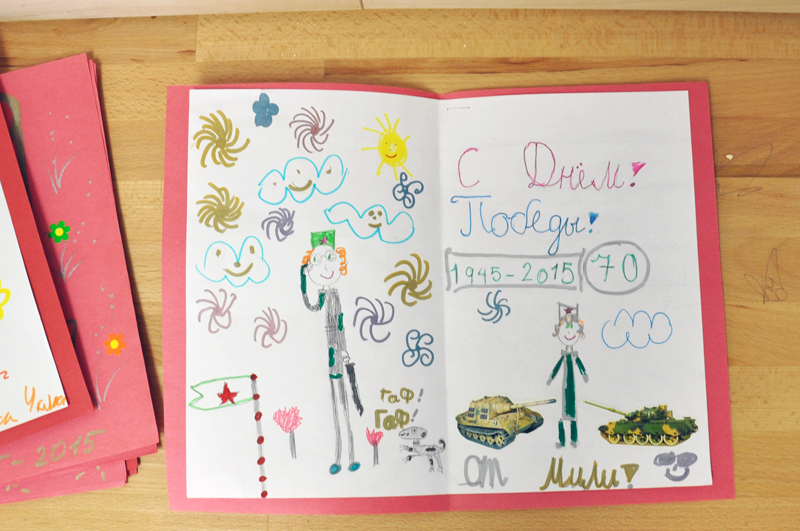 гаф!
Гаф!
С Днём!
Победы!
1945-2015 70
От Мили!
- 2015